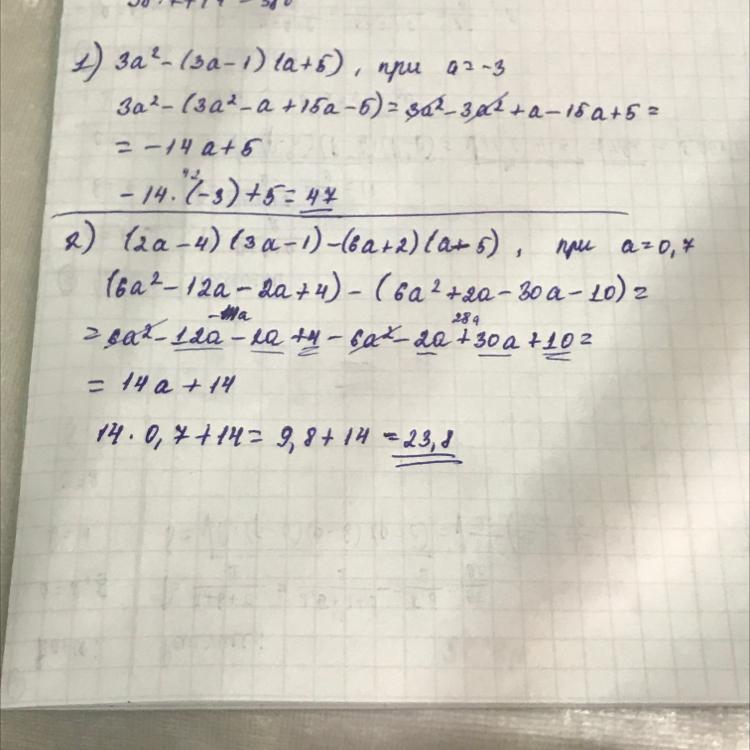 1) 3a² - (3a - 1)(a + 5), при a = -3
3a² - (3a² - a + 15a - 5) = 3a² - 3a² + a - 15a + 5 =
= -14a + 5
42
-14 · (-3) + 5 = 47
2) (2a - 4)(3a - 1) - (6a + 2)(a - 5), при a = 0,7
(6a² - 12a - 2a + 4) - (6a² + 2a - 30a - 10) =
28a
= 6a² - 12a - 2a + 4 - 6a² - 2a + 30a + 10 =
= 14a + 14
14 · 0,7 + 14 = 9,8 + 14 = 23,8